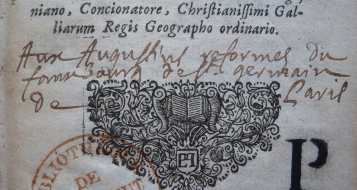 niano, Concionatore, Christianissimi Gal-
liarum Regis Geographo ordinario.
Aux Augustins reformes du
fauxbourg de St germain
de Paris
BIBLIOT
DE
P